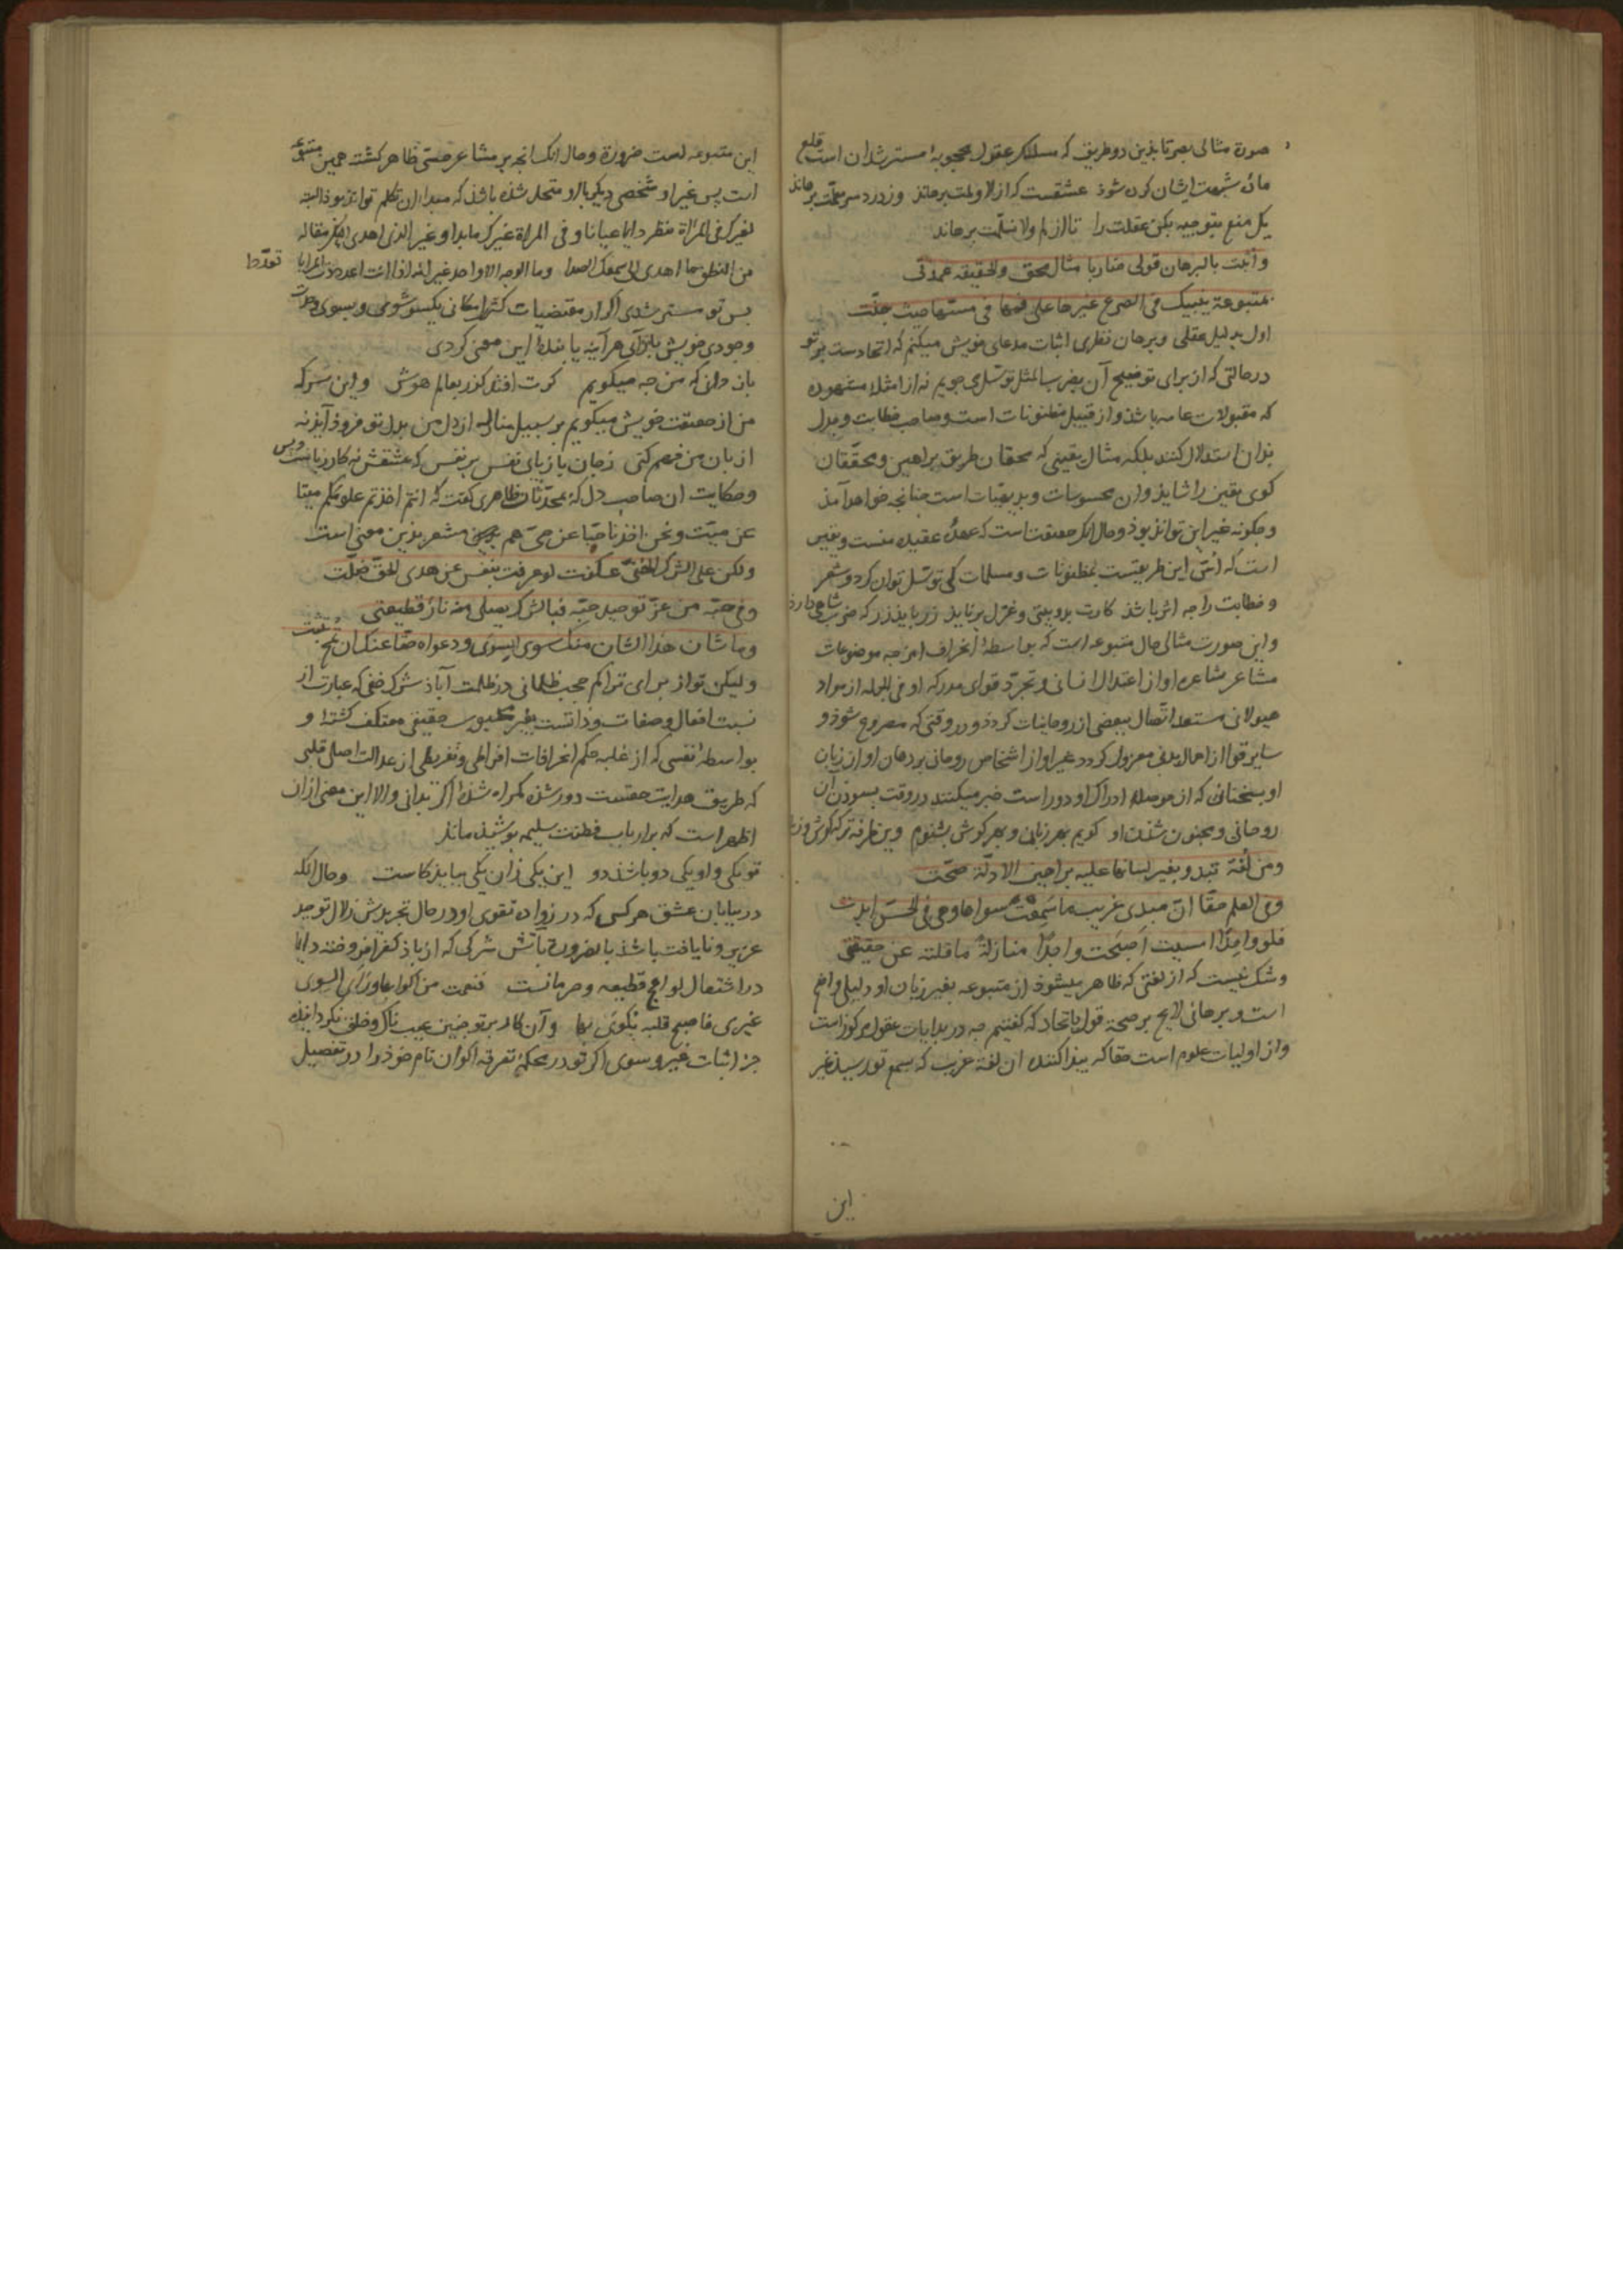 صورة مثالی بصرتا بذین دو طریق که مسلک عقول محجوبه مسترشدان است قلع
مادّه شبهت ایشان کرده شوذ عشقست که از لا و لمت برهاند وز درد سر علّت برهاند
یک منع بتوجیه بکن عقلت را تا از لم و لا نسلّمت برهاند
و اثبت بالبرهان قولی ضاربا مثال محق والحقیقه عمدتی
بمتبوعة ینبیک فی الصرع غیرها علی فمها فی مسّها حیث جنّت
اول بدلیل عقلی و برهان نظری اثبات مدعای خویش میکنم که اتحادست بر تو
در حالتی که از برای توضیح آن بضرب المثل توسّل می جویم نه از امثله مشهوره
که مقبولات عامه باشذ و از قبیل مظنونات است و صاحب خطابت و جدل
بذان استدلال کنند بلکه مثال یقینی که محقان طریق براهین و محقّقان
کوی یقین را شاید و آن محسوسات و بدیهیّات است چنانچه خواهد آمد
و چکونه غیر این تواند بوذ و حال آنکه حقیقت است که عمده عقیده منست و یقین
است که این طریقست بمظنونات و مسلمات کی توسّل توان کرد و شعر
و خطابت را چه اثر باشد کارت بدو بیتی و غزل برناید زر باید زر که ضرب شاهی دارذ
و این صورت مثالی حال متبوعه است که بواسطهٔ انحراف امزجه موضوعات
مشاعر مشاعره او از اعتدال انسانی و تجرّد قوای مدرکه او فی الجمله از مواد
هیولانی مستعد اتّصال ببعضی از روحانیات کردد و در وقتی که مصروع شوذ و
سایر قوا از اعمال بدنی معزول کردد غیر او از اشخاص روحانی بر دهان او از زبان
او بسخنانی که از حوصلهٔ ادراک او دور است خبر میکنند در وقت بسوذن آن
روحانی و مجنون شدن او کویم بهر زبان و بهر کوش بشنوم وین طرفه تر که کوش و زبا
و من لغة تبدو بغیر لسانها علیه براهین الادلّة صحّت
و فی العلم حقّا انّ مبدی غریب ما سَمِعتَ سواها و هی فی الحسّ ابدت
فلو واحدًا امسیت اصبحت واجدًا منازلةً ما قلته عن حقیقتی
و شک نیست که از لغتی که ظاهر میشوذ از متبوعه بغیر زبان او دلیلی واضح
است و برهانی لایح بر صحة قول باتحاد که کفتیم چه در بدایات عقول مرکوز است
و از اولیات علوم است حقا که پیذا کننده آن لغة غریب که بسمع تو رسیذ غیر
این
این متبوعه است ضرورة و حال آنک آنچه بر مشاعر حسّی ظاهر کشته همین متبوعه
است پس غیر او شخصی دیکر با او متحد شده باشد که مبدا آن تکلم تواند بوذ البته
لغیرک فی المرآة منظر دایما عیانا و فی المرآة غیرک ما بدا و غیر الذی اهدی الیک مقاله
من النطق ما اهدی الی سمعک الصدا و ما الوجه الا واحد غیر انه اذا انت اعددت المرایا تعدّدا
پس تو مستر شدی اکر از مقتضیات کثرت امکانی یکسو شوی و بسوی وحدت
وجودی خویش باز آئی هرآینه یابندهٔ این معنی کردی
باز دانی که من چه میکویم کرت افتد کذر بعالم هوش و این سر که
من از حقیقت خویش میکویم بر سبیل منازله از دل من بدل تو فروذ آید نه
از بان من فهم کنی ز جان بازیابی نفس بر نفس که عشقش نه کار زبانست و بس
و حکایت آن صاحب دل که محدّثان ظاهری کفت که انتم اخذتم علومکم میتا
عن میّت و نحن اخذنا حیّا عن حیّ هم مشعر بذین معنی است
ولکن علی الشرک الخفیّ عکفت لو عرفت بنفس عن هدی الحق ضلّت
و فی حبّه من عزّ توحید حبّه فبالشرک یصلی منه نار قطیعتی
و ما شان هذا الشان منک سوی السوی و دعواه حقّا عنک ان تمح تثبت
ولیکن تو از برای تراکم حجب ظلمانی در ظلمت آباد شرک خفی که عبارت از
نسبت افعال و صفات و ذاتست بغیر محبوب حقیقی معتکف کشتهٔ و
بواسطهٔ نفسی که از غلبه حکم انحرافات افراطی و تفریطی از عدالت اصلی قلبی
که طریق هدایت حقیقت دور شده کمراه شدهٔ اکر بدانی و الا این معنی از آن
اظهر است که بر ارباب فطنت سلیمه پوشیذه ماند
تو یکی و او یکی دو باشذ دو این یکی زان یکی بباید کاست و حال آنکه
در بیابان عشق هر کسی که در زواده تقوی او در حال تجریدش زلال توحید
عزیز و نایافت باشذ بالضرورة بآتش شرکی که از باذ کفر افروخته دایما
در اشتعال لواعج قطیعه و حرمانست فنعمت من اکوابها و رای السوی
غیری فاصبح قلبه یکوی بها و آن کار بر تو چنین عیب ناک و خلق نکردانیذه
جز اثبات غیر و سوی اکر تو در محکمهٔ تفرقه اکوان نام خوذ را در تفصیل